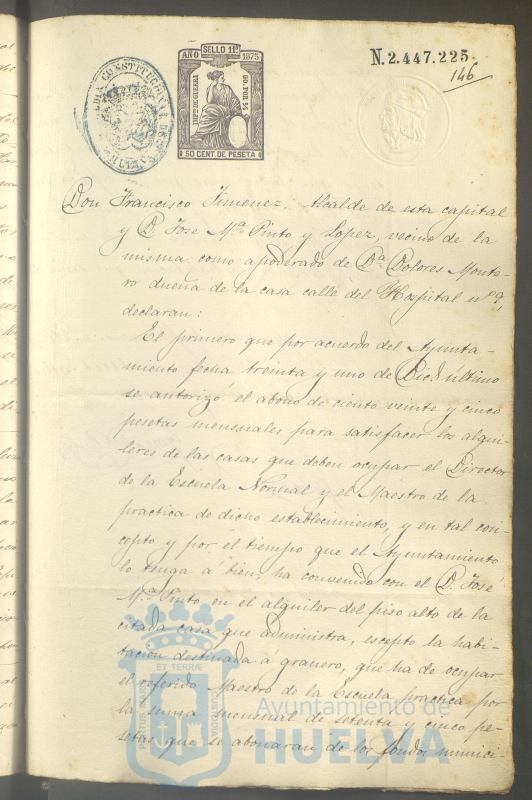 AÑO SELLO 11º 1875
IMPTO DE GUERRA
50 CENT. DE PESETA
N.2.447.225
146
Don Francisco Jimenez, Alcalde de esta capital
y D. Jose Mª Pinto y Lopez, vecino de la
misma como apoderado de Dª Dolores Monte-
ro dueña de la casa calle del Hospital nº 9,
declaran:
El primero que por acuerdo del Ayunta-
miento fecha treinta y uno de Dicbe último
se autorizó el abono de ciento veinte y cinco
pesetas mensuales para satisfacer los alqui-
leres de las casas que deben ocupar el Director
de la Escuela Normal y el Maestro de la
practica de dicho establecimiento, y en tal con-
cepto y por el tiempo que el Ayuntamiento
lo tenga á bien, ha convenido con el D. José
Mª Pinto en el alquiler del piso alto de la
citada casa que administra, escepto la habi-
tacion destinada á granero, que ha de ocupar
el referido Maestro de la Escuela practica por
la suma mensual de setenta y cinco pe-
setas que se abonaran de los fondos munici-
ET TERRÆ
PORTUS MARIS
CUSTODIA
Ayuntamiento de
HUELVA